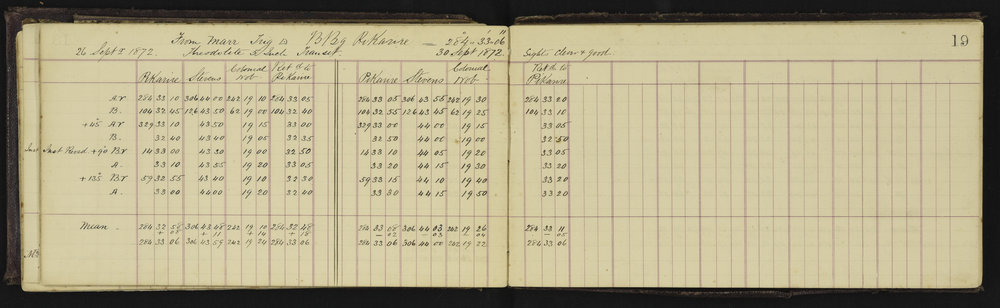 From Marr Trig is B Peg Pikaure = 284°-33-06" 19
26 Septr 1872. Theodolite 5 Inch Transit 30 Sept 1872. Sights clear & good.
Pikaure Stevens Colonial Nob Ret d to Pikaure Pikaure Stevens Colonial Nob Ret d to Pikaure
A.r 284 33 10 306 44 00 242 19 10 284 33 05 284 33 05 306 43 55 242 19 30 284 33 20
B. 104 32 45 126 43 50 62 19 00 104 32 40 104 32 55 126 43 45 62 19 25 104 33 10
+45° A r 329 33 10 43 50 19 15 33 00 329 33 00 44 00 19 15 33 05
B. 32 40 43 40 19 05 32 35 32 50 44 00 19 00 32 50
Inst Inst Revd +90 B r 14 33 00 43 30 19 00 32 50 14 33 10 44 05 19 20 33 05
A. 33 10 43 55 19 20 33 05 33 20 44 15 19 30 33 20
+135° B r 59 32 55 43 40 19 10 32 30 59 33 15 44 10 19 40 33 20
A. 33 00 44 00 19 20 32 40 33 30 44 15 19 50 33 20
Mean - 284 32 58 306 43 48 242 19 10 284 32 48 284 33 08 306 44 03 242 19 26 284 33 11
+ 08 + 11 + 14 + 18 - 02 03 - 04 - 05
284 33 06 306 43 59 242 19 24 284 33 06 284 33 06 306 44 00 242 19 22 284 33 06